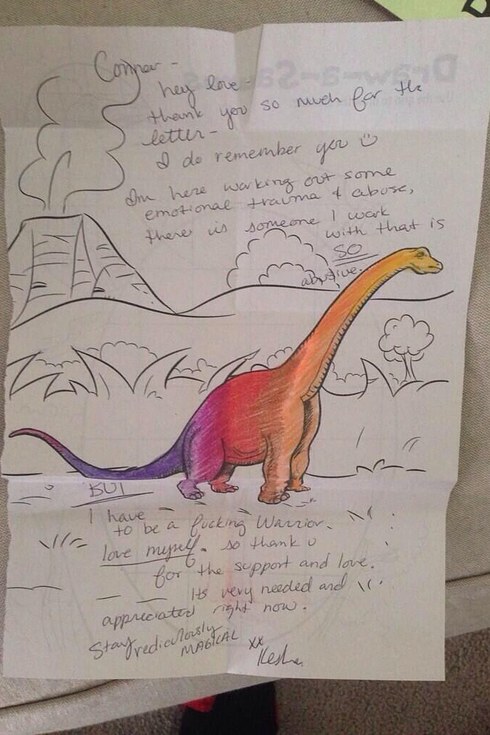 Connor -
hey love -
thank you so much for the
letter -
I do remember you
Im here working out some
emotional trauma & abuse,
there is someone I work
with that is
SO
abusive.
BUT
I have
to be a fucking Warrior.
love myself. so thank u
for the support and love.
Its very needed and
appreciated right now.
Stay rediculously
MAGICAL
xx
Kesha